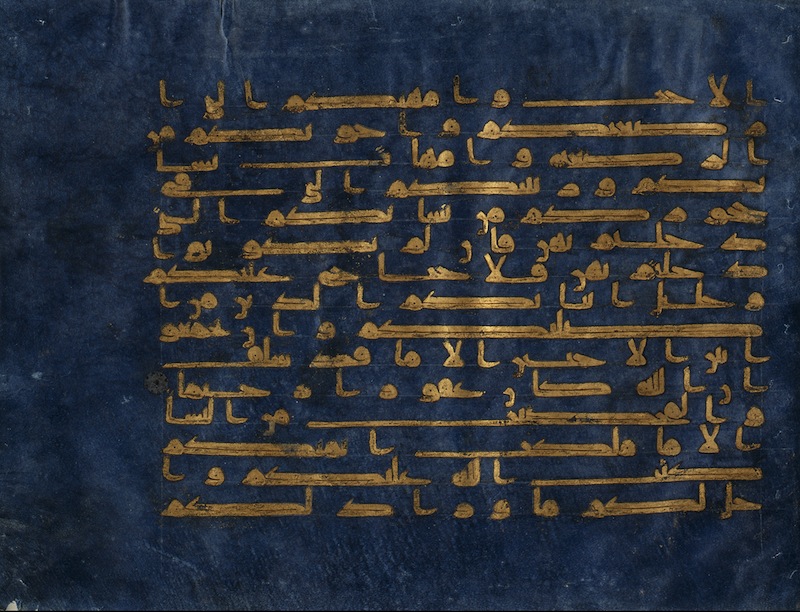 الاخت وامهتكم التى ا
رضعنكم واخوتكم من
الرضعة وامهت نسا
ئكم وربئبكم التى فى
حجوركم من نسائكم التى
دخلتم بهن فان لم تكونوا
دخلتم بهن فلا جناح عليكم
وحلئل ابنائكم الذين من ا
صلبكم وان تجمعوا
بين الاختين الا ما قد سلف
ان الله كان غفورا رحيما
والمحصنت من النسا
الا ما ملكت ايمنكم
كتب الله عليكم وا
حل لكم ما ورا ذلكم